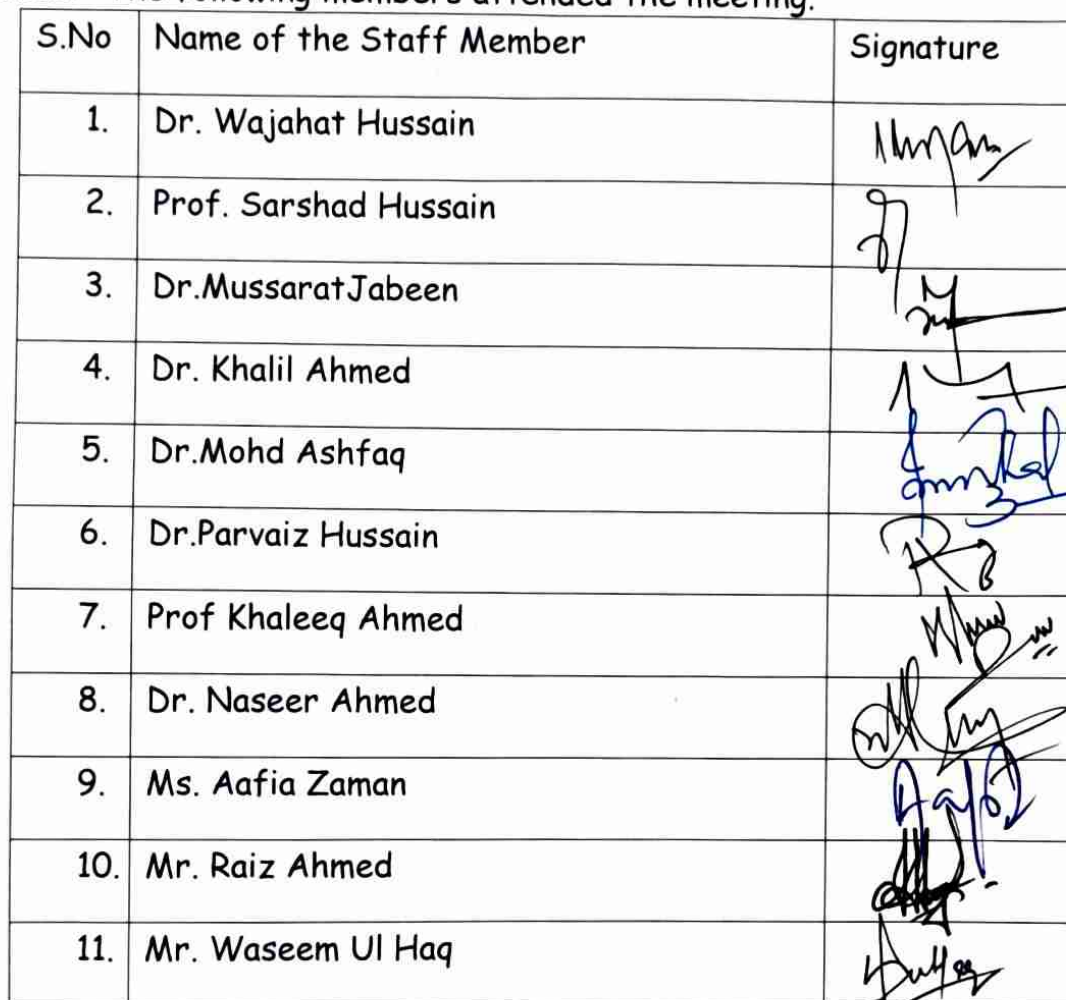 following members attended the meeting.
S.No Name of the Staff Member Signature
1. Dr. Wajahat Hussain
2. Prof. Sarshad Hussain
3. Dr.MussaratJabeen
4. Dr. Khalil Ahmed
5. Dr.Mohd Ashfaq
6. Dr.Parvaiz Hussain
7. Prof Khaleeq Ahmed
8. Dr. Naseer Ahmed
9. Ms. Aafia Zaman
10. Mr. Raiz Ahmed
11. Mr. Waseem Ul Haq